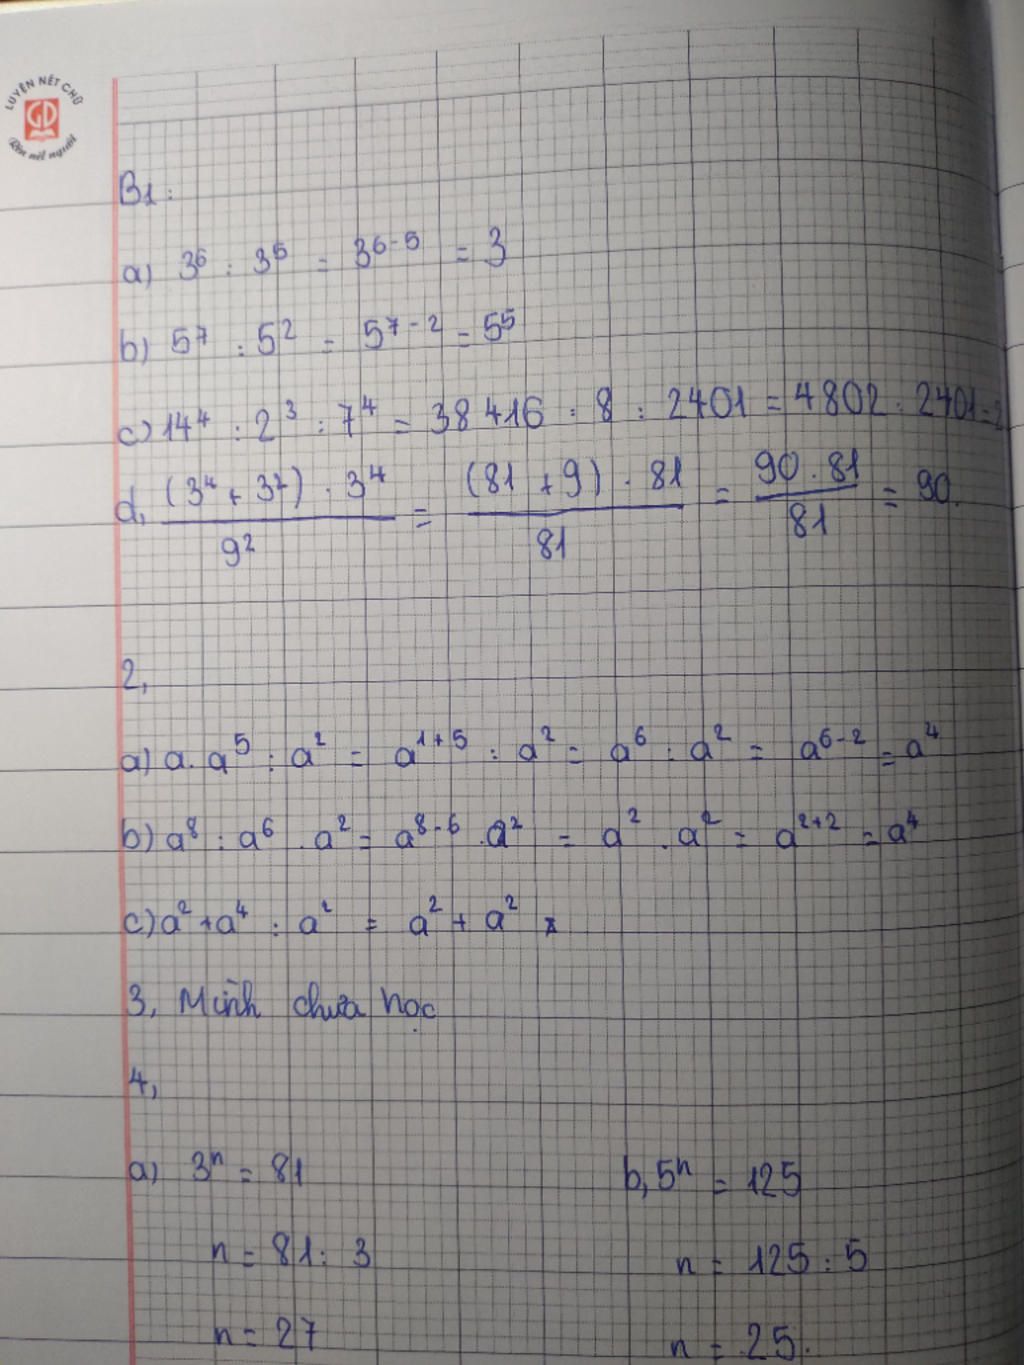 LUYỆN NÉT CHỮ
GD
Rèn nết người
B1:
a) 3⁶ : 3⁵ = 3⁶⁻⁵ = 3
b) 5⁷ : 5² = 5⁷⁻² = 5⁵
c) 14⁴ : 2³ : 7⁴ = 38416 : 8 : 2401 = 4802 : 2401 = 2
d, (3⁴ + 3²) . 3⁴ / 9² = (81 + 9) . 81 / 81 = 90 . 81 / 81 = 90.
2,
a) a. a⁵ : a² = a¹⁺⁵ : a² = a⁶ : a² = a⁶⁻² = a⁴
b) a⁸ : a⁶ . a² = a⁸⁻⁶ . a² = a² . a² = a²⁺² = a⁴
c) a² + a⁴ : a² = a² + a²
3, Mình chưa học
4,
a) 3ⁿ = 81 b, 5ⁿ = 125
n = 81 : 3 n = 125 : 5
n = 27 n = 25.